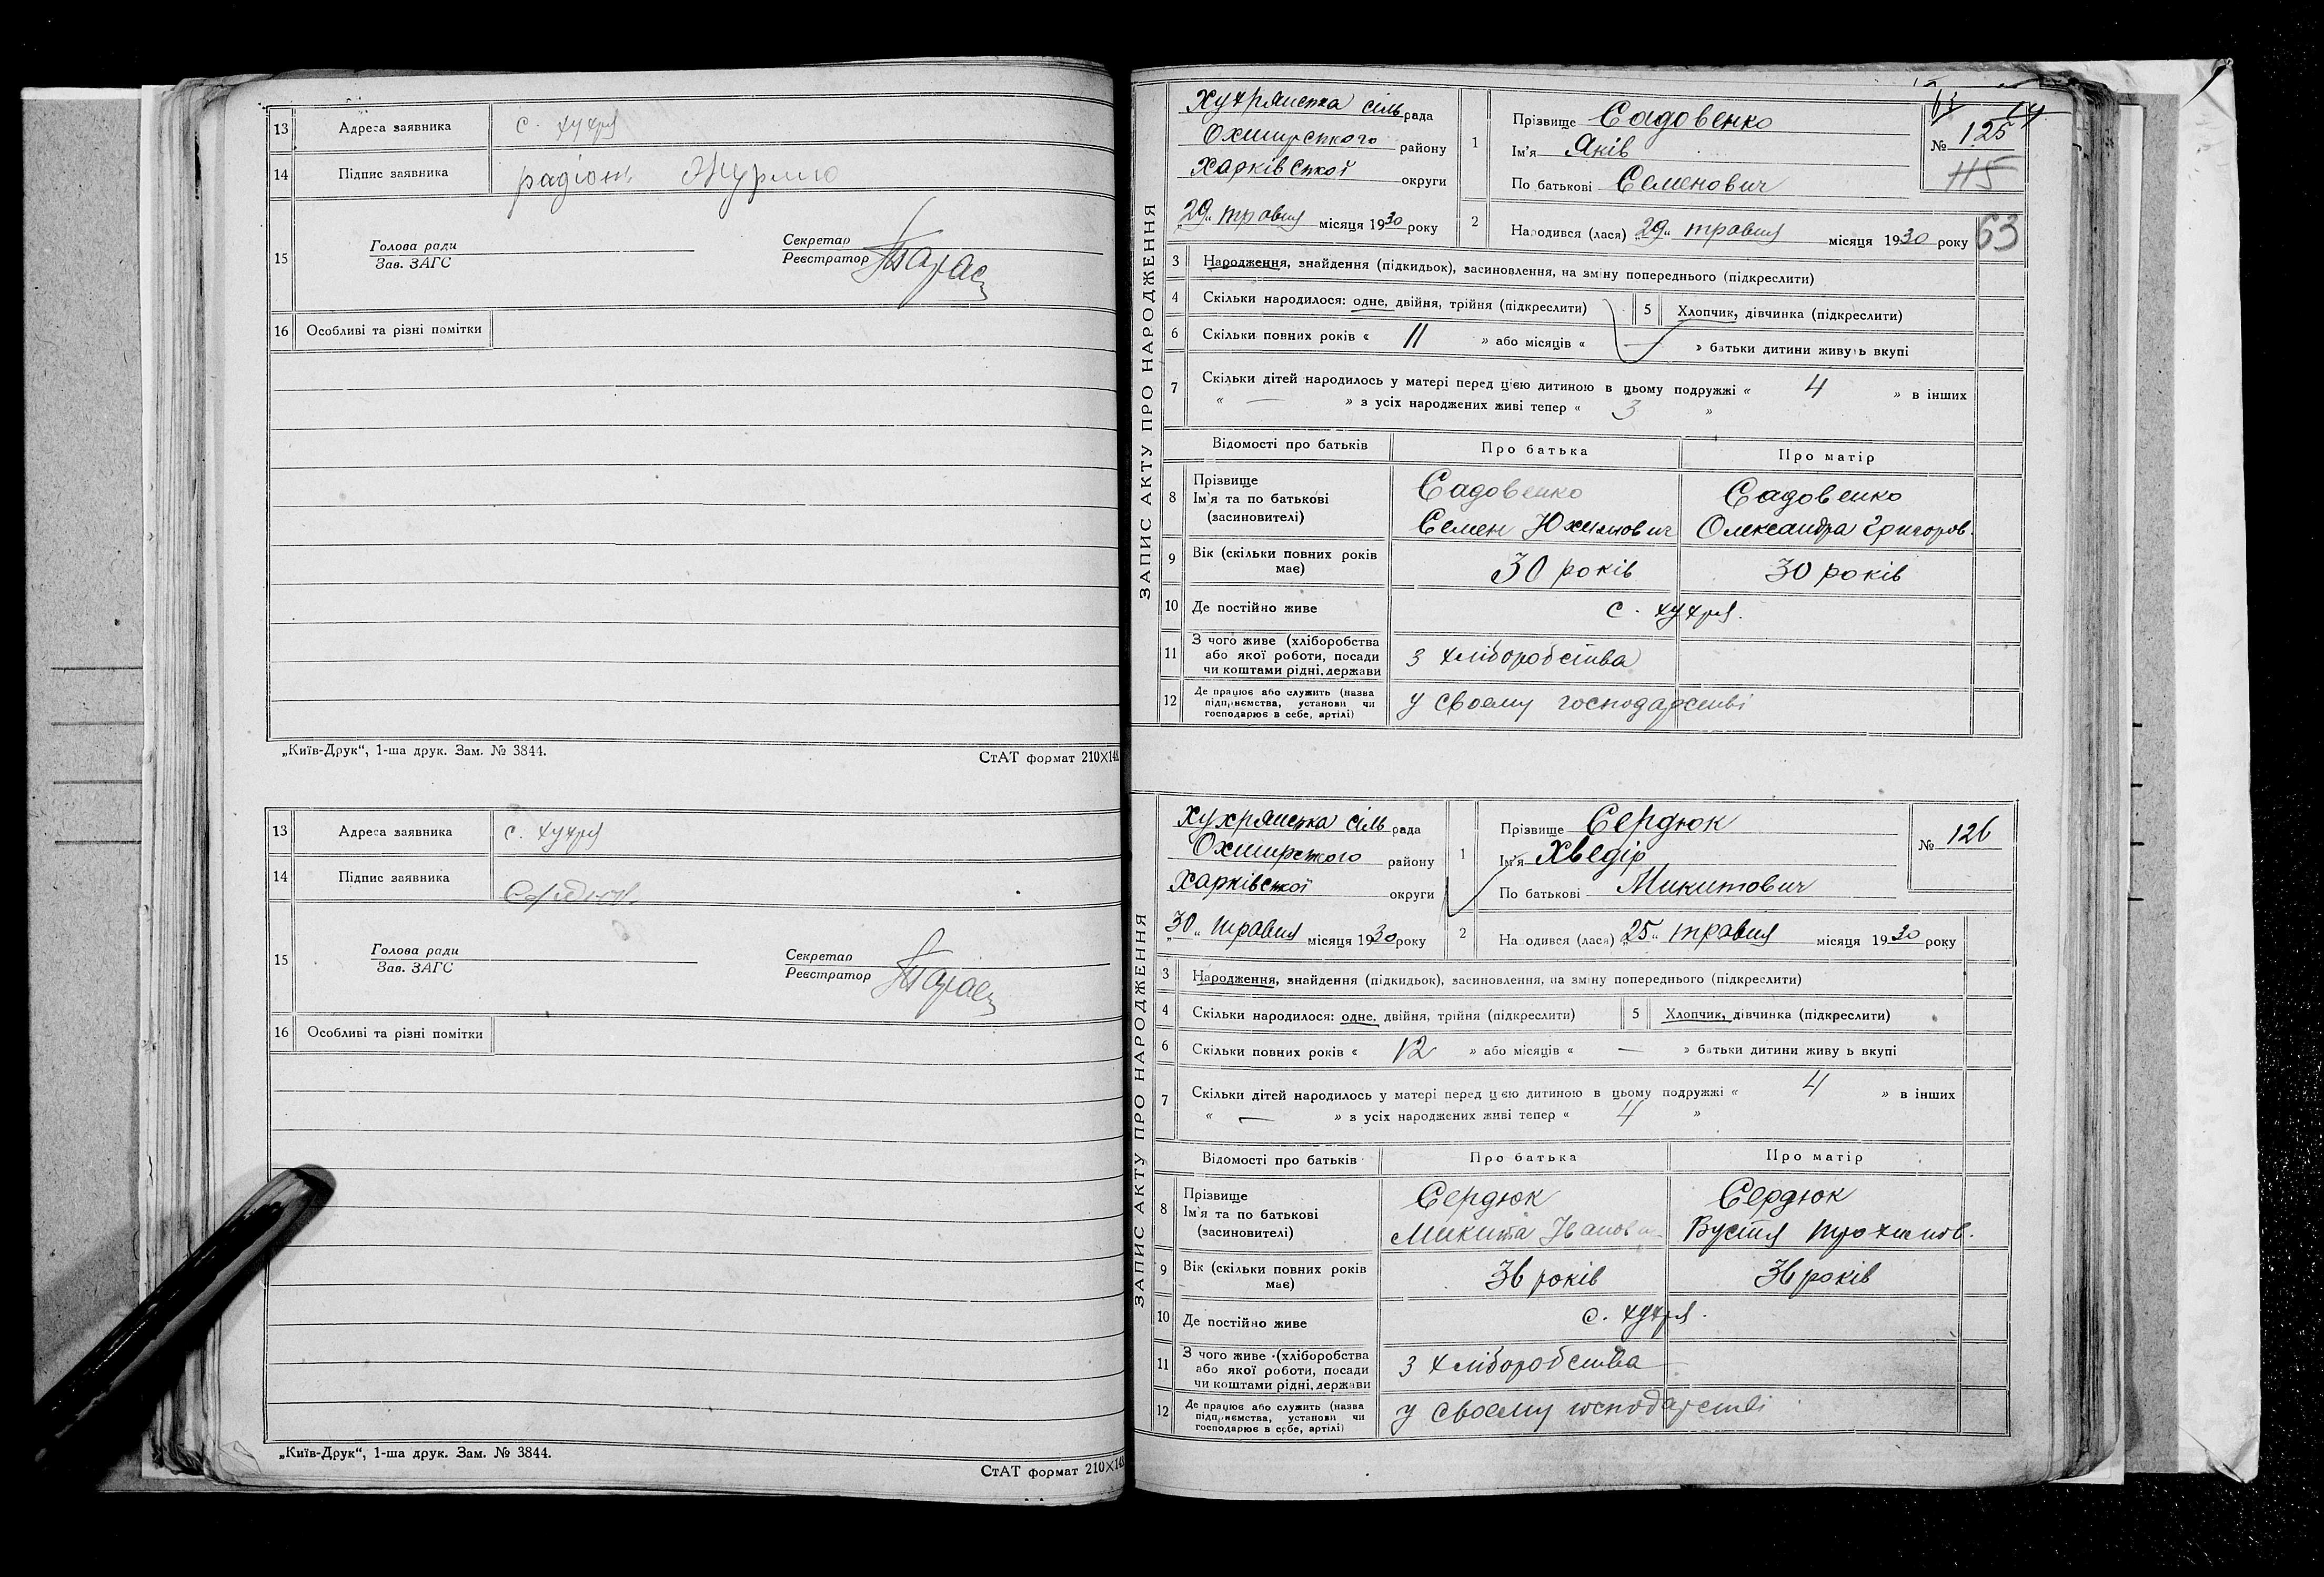 13 Адреса заявника с. Хухря
14 Підпис заявника
15 Голова ради
Зав. ЗАГС
Секретар
Реєстратор
16 Особливі та різні помітки
„Київ-Друк“, 1-ша друк. Зам. № 3844.
СтАТ формат 210×148
13 Адреса заявника с. Хухря
14 Підпис заявника
15 Голова ради
Зав. ЗАГС
Секретар
Реєстратор
16 Особливі та різні помітки
„Київ-Друк“, 1-ша друк. Зам. № 3844.
СтАТ формат 210×148
ЗАПИС АКТУ ПРО НАРОДЖЕННЯ
Хухрянська сіль рада
Охтирського району
Харківської округи
„29„ травня місяця 1930 року
1 Прізвище Садовенко
Ім'я Яків
По батькові Семенович
№ 125
115
63
2 Народився (лася) „29„ травня місяця 1930 року
3 Народження, знайдення (підкидьок), засиновлення, на зміну попереднього (підкреслити)
4 Скільки народилося: одне, двійня, трійня (підкреслити) 5 Хлопчик, дівчинка (підкреслити)
6 Скільки повних років « 11 » або місяців « — » батьки дитини живуть вкупі
7 Скільки дітей народилось у матері перед цією дитиною в цьому подружжі « 4 » в інших
« — » з усіх народжених живі тепер « 3 »
Відомості про батьків Про батька Про матір
8 Прізвище
Ім'я та по батькові
(засиновителі)
Садовенко
Семен Юхимович
Садовенко
Олександра Григоров.
9 Вік (скільки повних років
має)
30 років 30 років
10 Де постійно живе с. Хухря.
11 З чого живе (хліборобства
або якої роботи, посади
чи коштами рідні, держави
з хліборобства
12 Де працює або служить (назва
підприємства, установи чи
господарює в себе, артілі)
у своєму господарстві
ЗАПИС АКТУ ПРО НАРОДЖЕННЯ
Хухрянська сіль рада
Охтирського району
Харківської округи
„30„ травня місяця 1930 року
1 Прізвище Сердюк
Ім'я Хведір
По батькові Микитович
№ 126
2 Народився (лася) „25„ травня місяця 1930 року
3 Народження, знайдення (підкидьок), засиновлення, на зміну попереднього (підкреслити)
4 Скільки народилося: одне, двійня, трійня (підкреслити) 5 Хлопчик, дівчинка (підкреслити)
6 Скільки повних років « 12 » або місяців « — » батьки дитини живуть вкупі
7 Скільки дітей народилось у матері перед цією дитиною в цьому подружжі « 4 » в інших
« — » з усіх народжених живі тепер « 4 »
Відомості про батьків Про батька Про матір
8 Прізвище
Ім'я та по батькові
(засиновителі)
Сердюк
Микита Іванов
Сердюк
Вустя Трохимов.
9 Вік (скільки повних років
має)
36 років 36 років
10 Де постійно живе с. Хухря.
11 З чого живе (хліборобства
або якої роботи, посади
чи коштами рідні, держави
з хліборобства
12 Де працює або служить (назва
підприємства, установи чи
господарює в себе, артілі)
у своєму господарстві